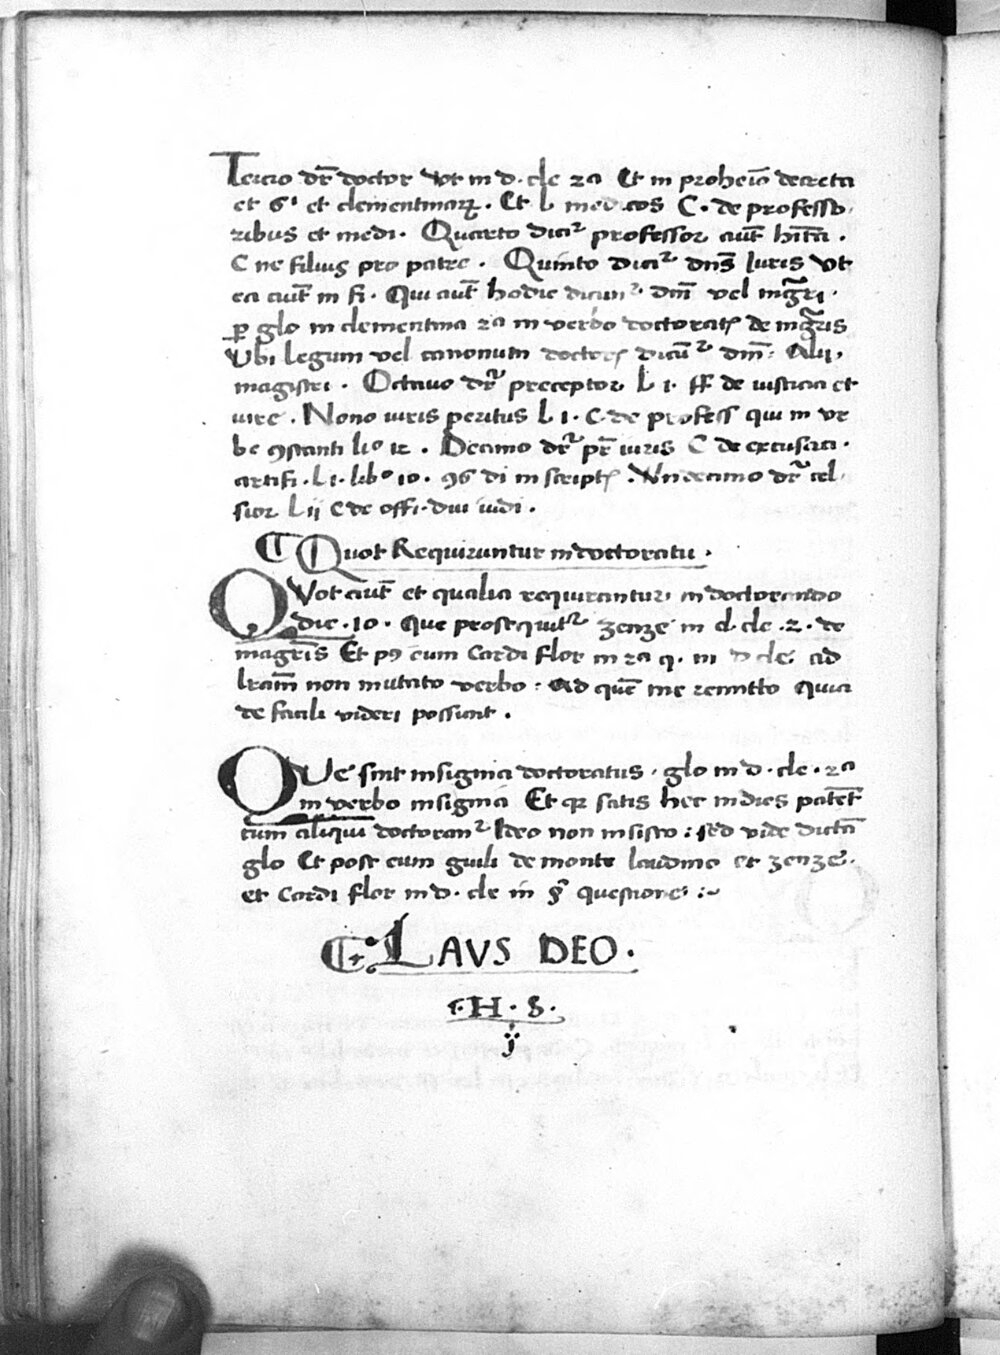 Tercio dr̄ doctor vt in d. cle 2a Et in prohemio decreta
et 6i et clementinarꝝ. Et l. medicos C. de professo
ribus et medi. Quarto dicir professor aut̄ hita.
C ne filius pro patre. Quinto dicir dn̄s Iuris vt
ea aut̄ in fi. Qui aut̄ hodie dicunr dn̄i vel mgr̄i.
ꝑ glo in clementina 2a in verbo doctoratꝭ de mgr̄is
Vbi legum vel canonum doctorꝭ dicūr dn̄i: Alii,
magistri. Octauo dr̄ preceptor L i. ff de iusticia et
iure. Nono iuris peritus L i. C. de profess qui in vr
be ꝯstanti lio 12. Decimo dr̄ pr̄ iuris C de excusati.
artifi. L i. libo 10. 96 di in scriptꝭ. Vndecimo dr̄ cel
sior L ii C de offi. diui iudi.
¶ Quot Requiruntur in doctoratu.
QVot aut̄ et qualia requirantur in doctorando
dic. 10. Que prosequitr zenze in d. cle. 2. de
magr̄is Et pꝰ eum Cardi flor in 2a q. in d cle ad
lr̄am non mutato verbo: Ad quē me remitto Quia
de facili videri possunt.
QVe sint insignia doctoratus. glo in d. cle. 2a
in verbo insignia Et qꝛ satis hec in dies patēt
cum aliqui doctoranr Ideo non insisto: sed vide dictā
glo Et post eum guili de monte laudino et zenze.
et Cardi flor in d. cle in §i questione :~
¶ LAVS DEO.